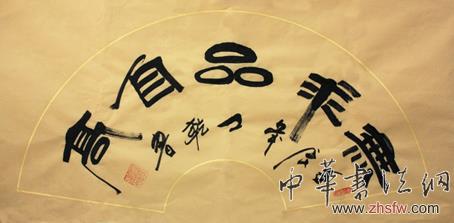 無求品自高
中華書法網
www.zhsfw.com